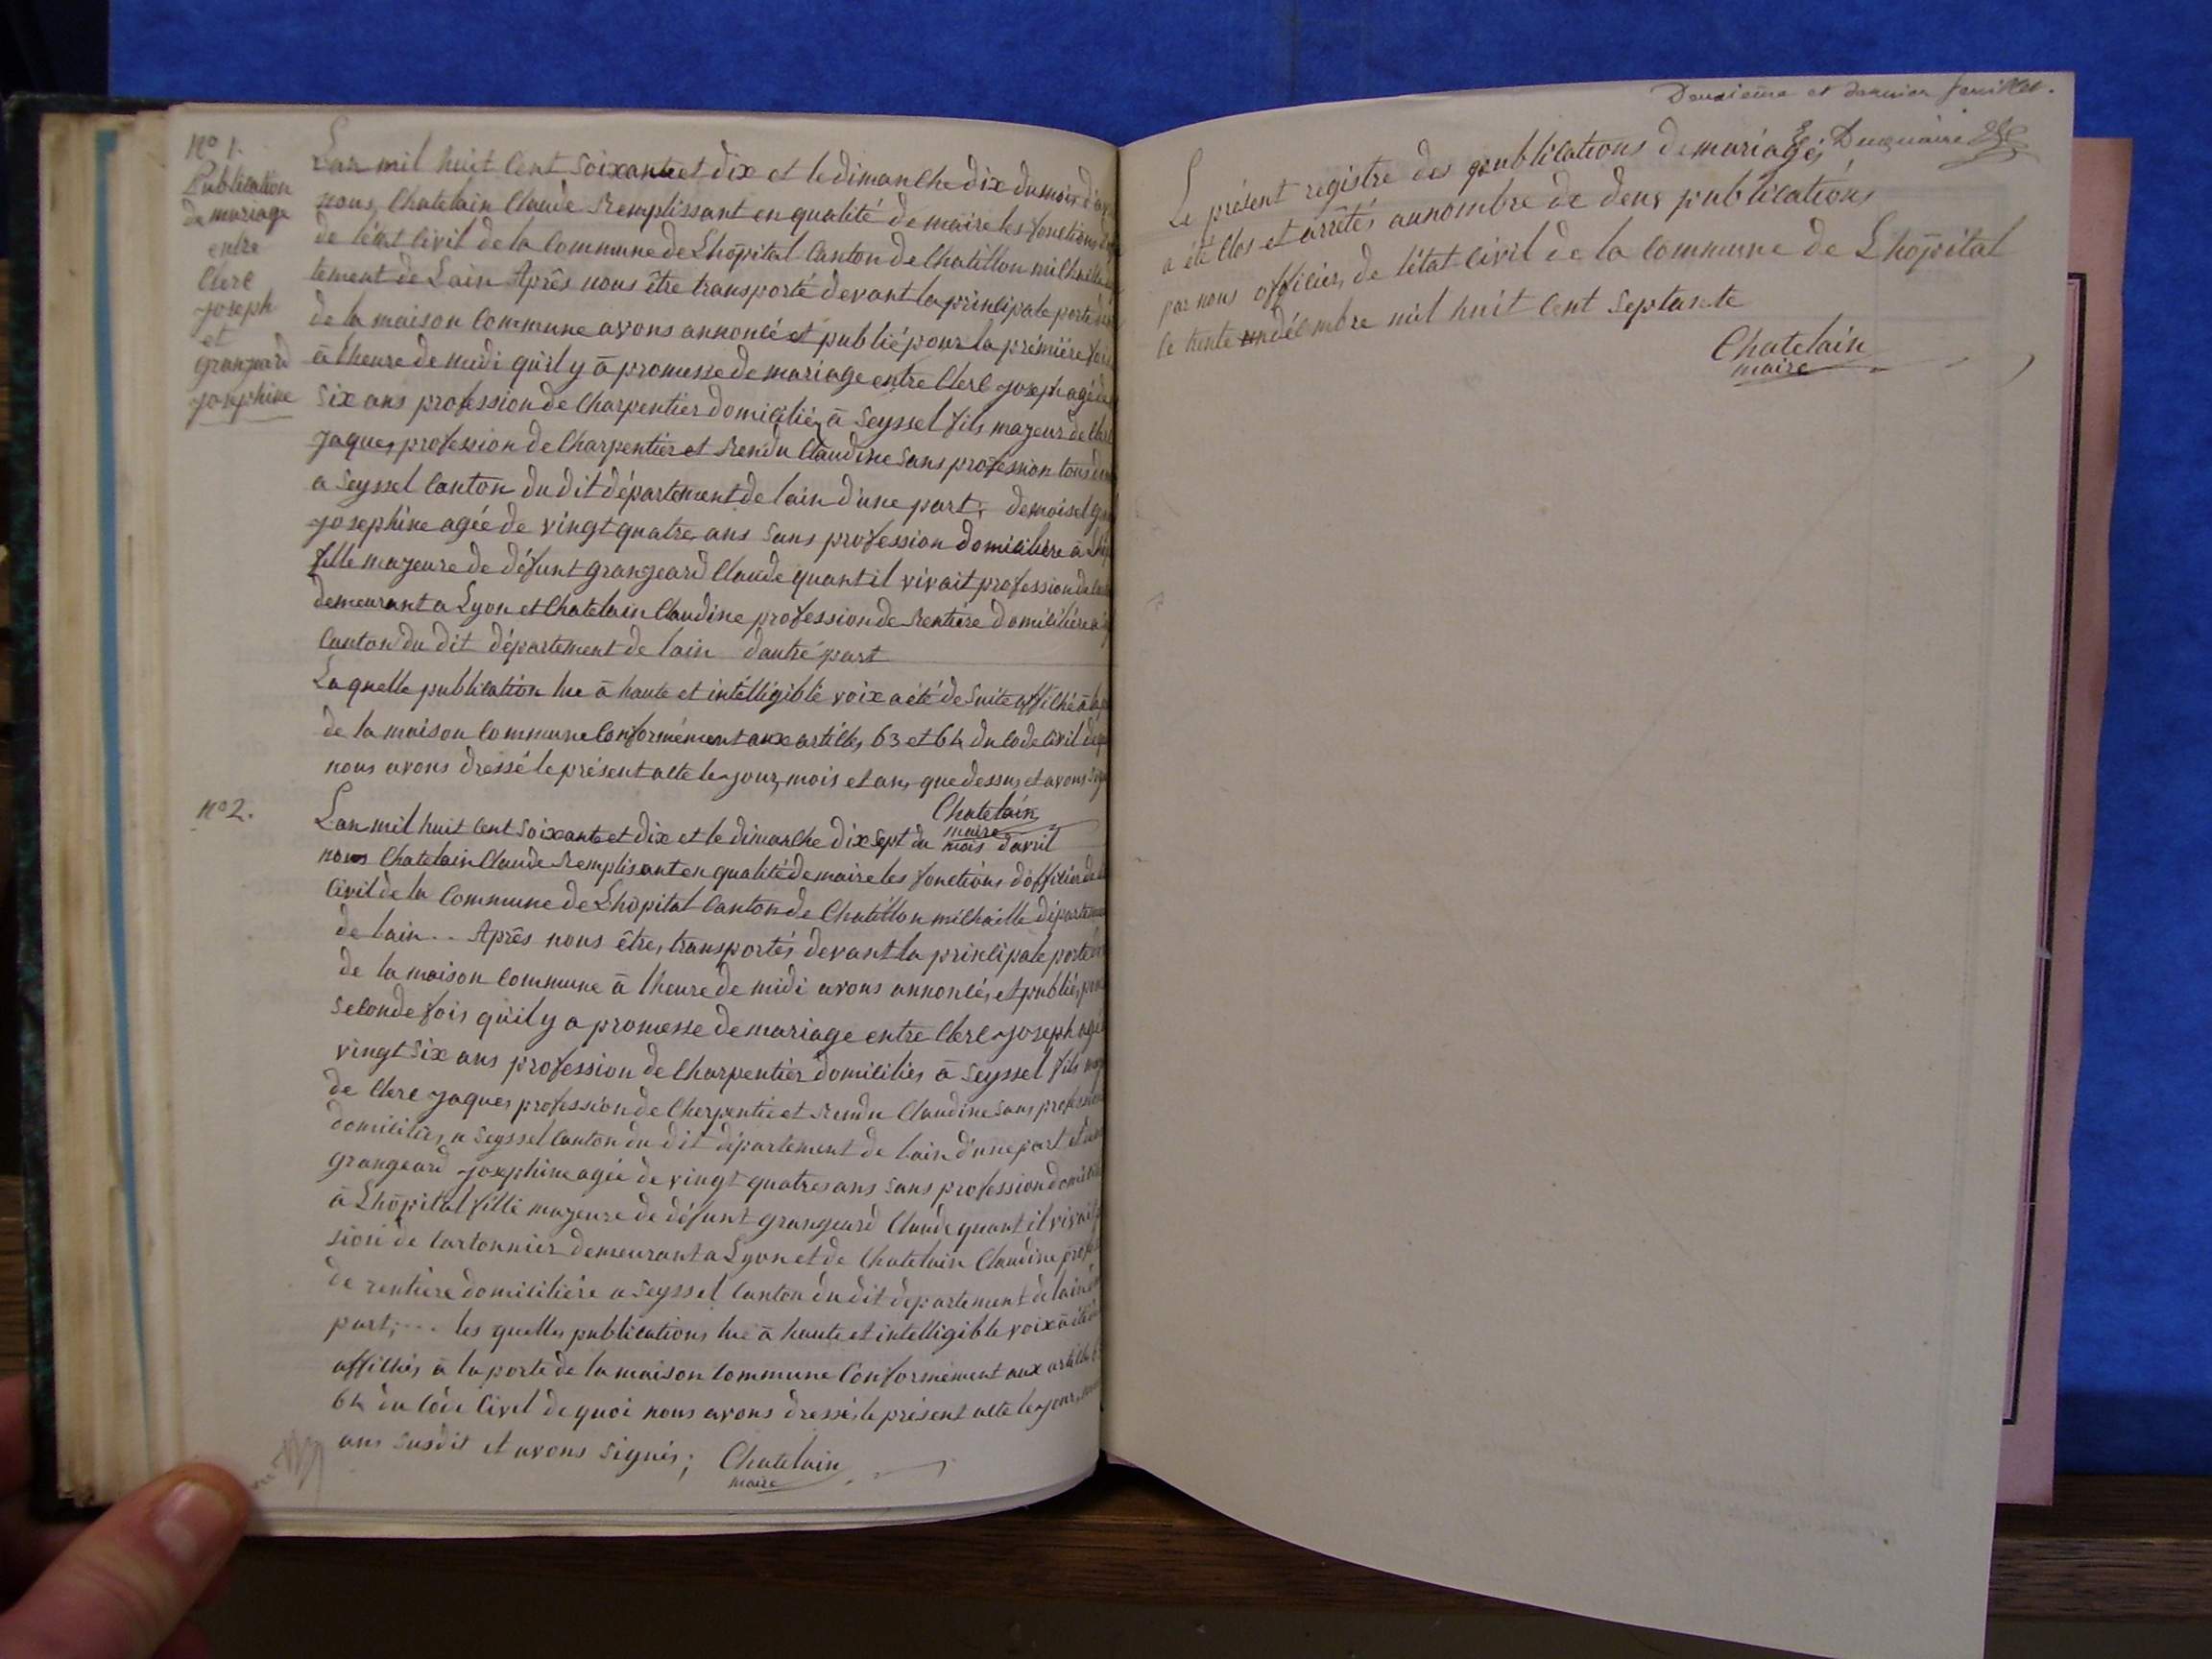 No 1.
Publication
de mariage
entre
Clerc
joseph
et
grangeard
josephine
Lan mil huit Cent Soixante et dix et le dimanche dix du mois
nous, Chatelain Claude Remplissant en qualité de maire les fonctions
de létat Civil de la Commune de Lhôpital Canton de Chatillon michaille
tement de Lain Après nous être transporté devant la principale porte
de la maison Commune avons annoncé et publié pour la première
à lheure de midi quil y à promesse de mariage entre Clerc joseph agé de
Six ans profession de Charpentier domicilié, à Seyssel fils majeur de
jaques profession de Charpentier et Rendu Claudine Sans profession tous
a Seyssel Canton du dit département de lain d'une part; demoisel
josephine agée de vingt quatre ans Sans profession domicilière à
fille majeure de défunt grangeard Claude quant il vivait profession de
demeurant a Lyon et Chatelain Claudine profession de Rentière domicilière
Canton du dit département de lain dautre part
Laquelle publication lue à haute et intélligible voix a été de Suite affiché à
de la maison Commune Conformément aux articles 63 et 64 du Code Civil
nous avons dressé le présent acte les jour, mois et an, que dessus, et avons
Chatelain
maire
no 2.
Lan mil huit Cent Soixante et dix et le dimanche dix Sept du mois davril
nous Chatelain Claude Remplisant en qualité de maire les fonctions dofficier de
Civil de la Commune de Lhôpital Canton de Chatillon michaille
de lain .. Après nous être, transportés devant la principale porte
de la maison Commune à lheure de midi avons annoncés et publiés
Seconde fois qu'il y a promesse de mariage entre Clerc joseph
vingt Six ans profession de Charpentier domiciliés à Seyssel fils
de Clerc jaques profession de Cherpentie et Rendu Claudine Sans
domiciliés a Seyssel Canton du dit département de lain d'une part
grangeard josephine agée de vingt quatres ans Sans profession
à Lhôpital fille majeure de défunt grangeard Claude quant il vivait
sion de Cartonnier demeurant a Lyon et de Chatelain Claudine
de rentière domicilière a Seyssel Canton du dit departement de lain
part; ... les quelles publications lue à haute et intelligible voix
affichés à la porte de la maison Commune Conformément aux
64 du Code Civil de quoi nous avons dressés le présent acte les jour,
ans Susdit et avons Signés; Chatelain
maire
Deuxième et dernier feuillet.
Le présent registre des publications de mariages
a été Clos et arrêtés aunombre de deux publications
par nous officier, de létat Civil de la Commune de Lhôpital
le trente un décembre mil huit Cent Septante
Chatelain
maire